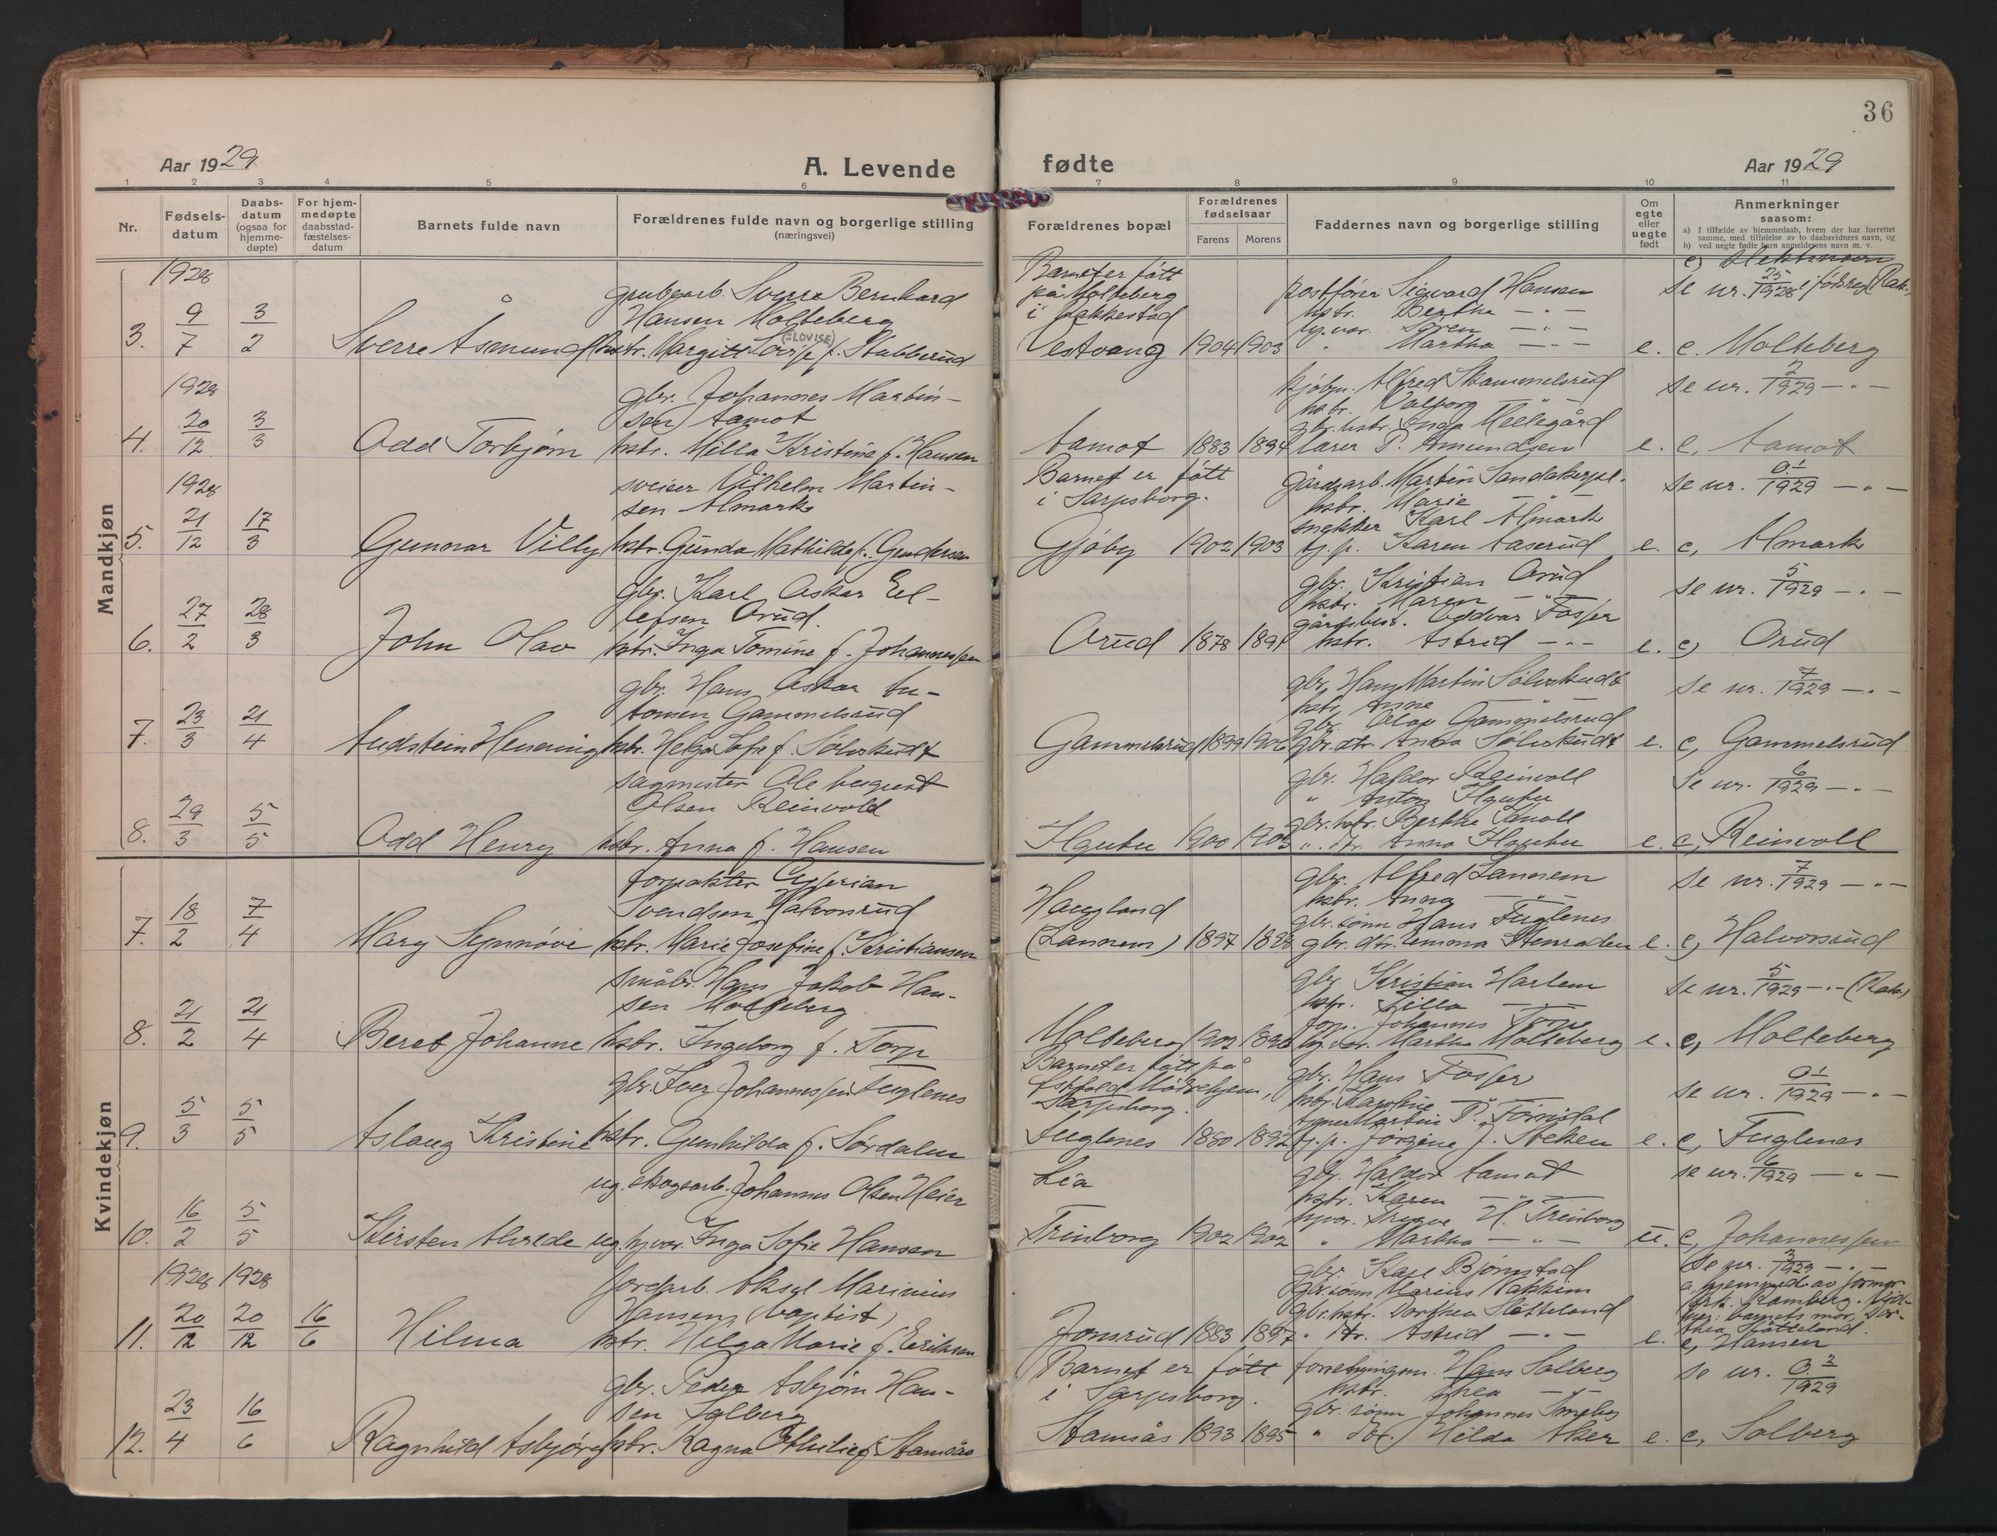 36
Aar 1929
A. Levende
fødte
Aar 1929
1 2 3 4 5 6 7 8 9 10 11
Nr.
Fødsels-
datum
Daabs-
datum
(ogsaa for
hjemme-
døpte)
For hjem-
medøpte
daabsstad-
fæstelses-
datum
Barnets fulde navn
Forældrenes fulde navn og borgerlige stilling
(næringsvei)
Forældrenes bopæl
Forældrenes
fødselsaar
Farens Morens
Faddernes navn og borgerlige stilling
Om
egte
eller
uegte
født
Anmerkninger
saasom:
a) I tilfælde av hjemmedaab, hvem der har forrettet
samme, med tilføielse av to daabsvidners navn, og
b) ved uegte fødte barn anmelderens navn m. v.
Mandkjøn
1928
grubearb. Sverre Bernhard
Barnet er født
postfører Sigvard Hansen
Hansen Molteberg
på Molteberg
hstr. Bertha — " —
Se nr. 25/1928 i fødreg. (Rak.)
i Rakkestad
Søren — " —
3. 9/7 3/2 Sverre Åsmund hstr. Margitt Lovise (Elovise) f. Stabberud Vestvang 1904 1903 " Martha — " — e. c, Molteberg
1928
gbr. Johannes Martin-
Alfred Skammelsrud
se nr. 2/1929 — " —
sen Aamot
hstr. Valborg — " —
gbr. hstr. Inga Mellegård
4. 20/12 3/3 Odd Torbjørn hstr. Milla Kristine f. Hansen Aamot 1883 1894 lærer P. Amundsen e. c, Aamot
1928
sveiser Vilhelm Martin-
Barnet er født
gårdsarb. Martin
Se nr. /1929 — " —
sen Almark
i Sarpsborg.
hstr. Marie — " —
snekker Karl Almark
5. 21/12 17/3 Gunnar Villy hstr. Gunda Mathilde f. Gundersen Gjøby 1902 1903 Karen Aaserud e. c, Almark
gbr. Karl Oskar El-
gbr. Kristian Orud
se nr. 5/1929 — " —
lefsen Orud.
hstr. Maren — " —
Oddvar Fosser
6. 27/2 28/3 John Olav hstr. Inga Tomine f. Johannessen Orud 1878 1891 hstr. Astrid — " — e. c, Orud
gbr. Hans Oskar An-
gbr. Hans Martin Sølvskudt
se nr. 7/1929 — " —
tonsen Gammelsrud
hstr. Anne
gbr. Olav Gammelsrud
7. 23/3 21/4 Audstein Henning hstr. Helga Sofie f. Sølvskudt Gammelsrud 1899 1906 gbr. dtr. Anna Sølvskudt e. c, Gammelsrud
sagmester Ole August
gbr. Haldor Reinvoll
Se nr. 6/1929 — " —
Olsen Reinvold
" Anton
gbr. hstr. Berthe
8. 29/3 5/5 Odd Henry hstr. Anna f. Hansen 1900 1903 " dtr. Anna e. c, Reinvoll
Kvindekjøn
forpakter Cyprian
gbr. Alfred Lannem
se nr. 7/1929 — " —
Svendsen Halvorsrud
Haugland
hstr. Anna — " —
gbr. sønn Hans Fuglenes
7. 18/2 7/4 Mary Synnøve hstr. Marie Josefine f. Kristiansen (Lannem) 1897 1898 gbr. dtr. Emma Stenraden e. c, Halvorsrud
småbr. Hans Jakob Han-
gbr. Kristian Harlem
se nr. 5/1929 — " — (Rak.)
sen Molteberg
hstr. Lilla — " —
forp. Johannes Torp
8. 21/2 21/4 Beret Johanne hstr. Ingeborg f. Torp Molteberg 1902 1896 Martha Molteberg e. c, Molteberg
gbr. Iver Johannessen Fuglenes
Barnet er født på
gbr. Hans Fosser
se nr. /1929 — " —
Østfold Mødrehjem,
hstr. Karoline — " —
Sarpsborg.
Martin P. Torsisdal
9. 5/3 5/5 Aslaug Kristine hstr. Gunhilda f. Sørdalen Fuglenes 1880 1892 Jørgine J. e. c, Fuglenes
ug. skogsarb. Johannes Olsen Heier
Lia
gbr. Haldor Aamot
se nr. 6/1929 — " —
hstr. Karen — " —
Trygve H. Trinborg
10. 16/2 5/5 Kirsten Alvilde ug. hj.vær. Inga Sofie Hansen Trinborg 1902 1902 " Martha — " — u. c, Johannessen
1928 1928
jordarb. Aksel Marinius
gbr. Karl Bjørnstad
Se nr. 3/1929 — " —
Hansen (baptist)
gbr. sønn Marius Vakkim
a, hjemmed. av jormor
gbr. hstr. Dorthea Slotteland
frk. Ramberg.
barnets mor, Dor-
thea Slotteland.
11. 20/12 20/12 16/6 Hilma hstr. Helga Marie f. Eriksen Jonsrud 1883 1897 " dtr. Astrid — " — e. c, Hansen
gbr. Peder Asbjørn Han-
Barnet er født
Hans Solberg
se nr. /1929
sen Solberg
i Sarpsborg.
hstr. Thea — " —
gbr. sønn Johannes
12. 23/4 16/6 Ragnhild Asbjørg hstr. Ragna Othilie f. Stamsås Stamsås 1893 1895 Hilda Aker e. c, Solberg